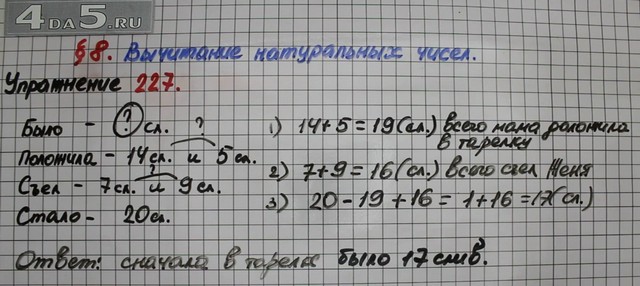 4DA5.RU
§8. Вычитание натуральных чисел.
Упражнение 227.
Было - ? сл.
?
Положила - 14сл. и 5 сл.
?
Съел - 7сл. и 9 сл.
Стало - 20сл.
1) 14+5=19(сл.) всего мама положила
в тарелку
2) 7+9=16(сл.) всего съел Женя
3) 20-19+16=1+16=17(сл.)
Ответ: сначала в тарелке было 17 слив.